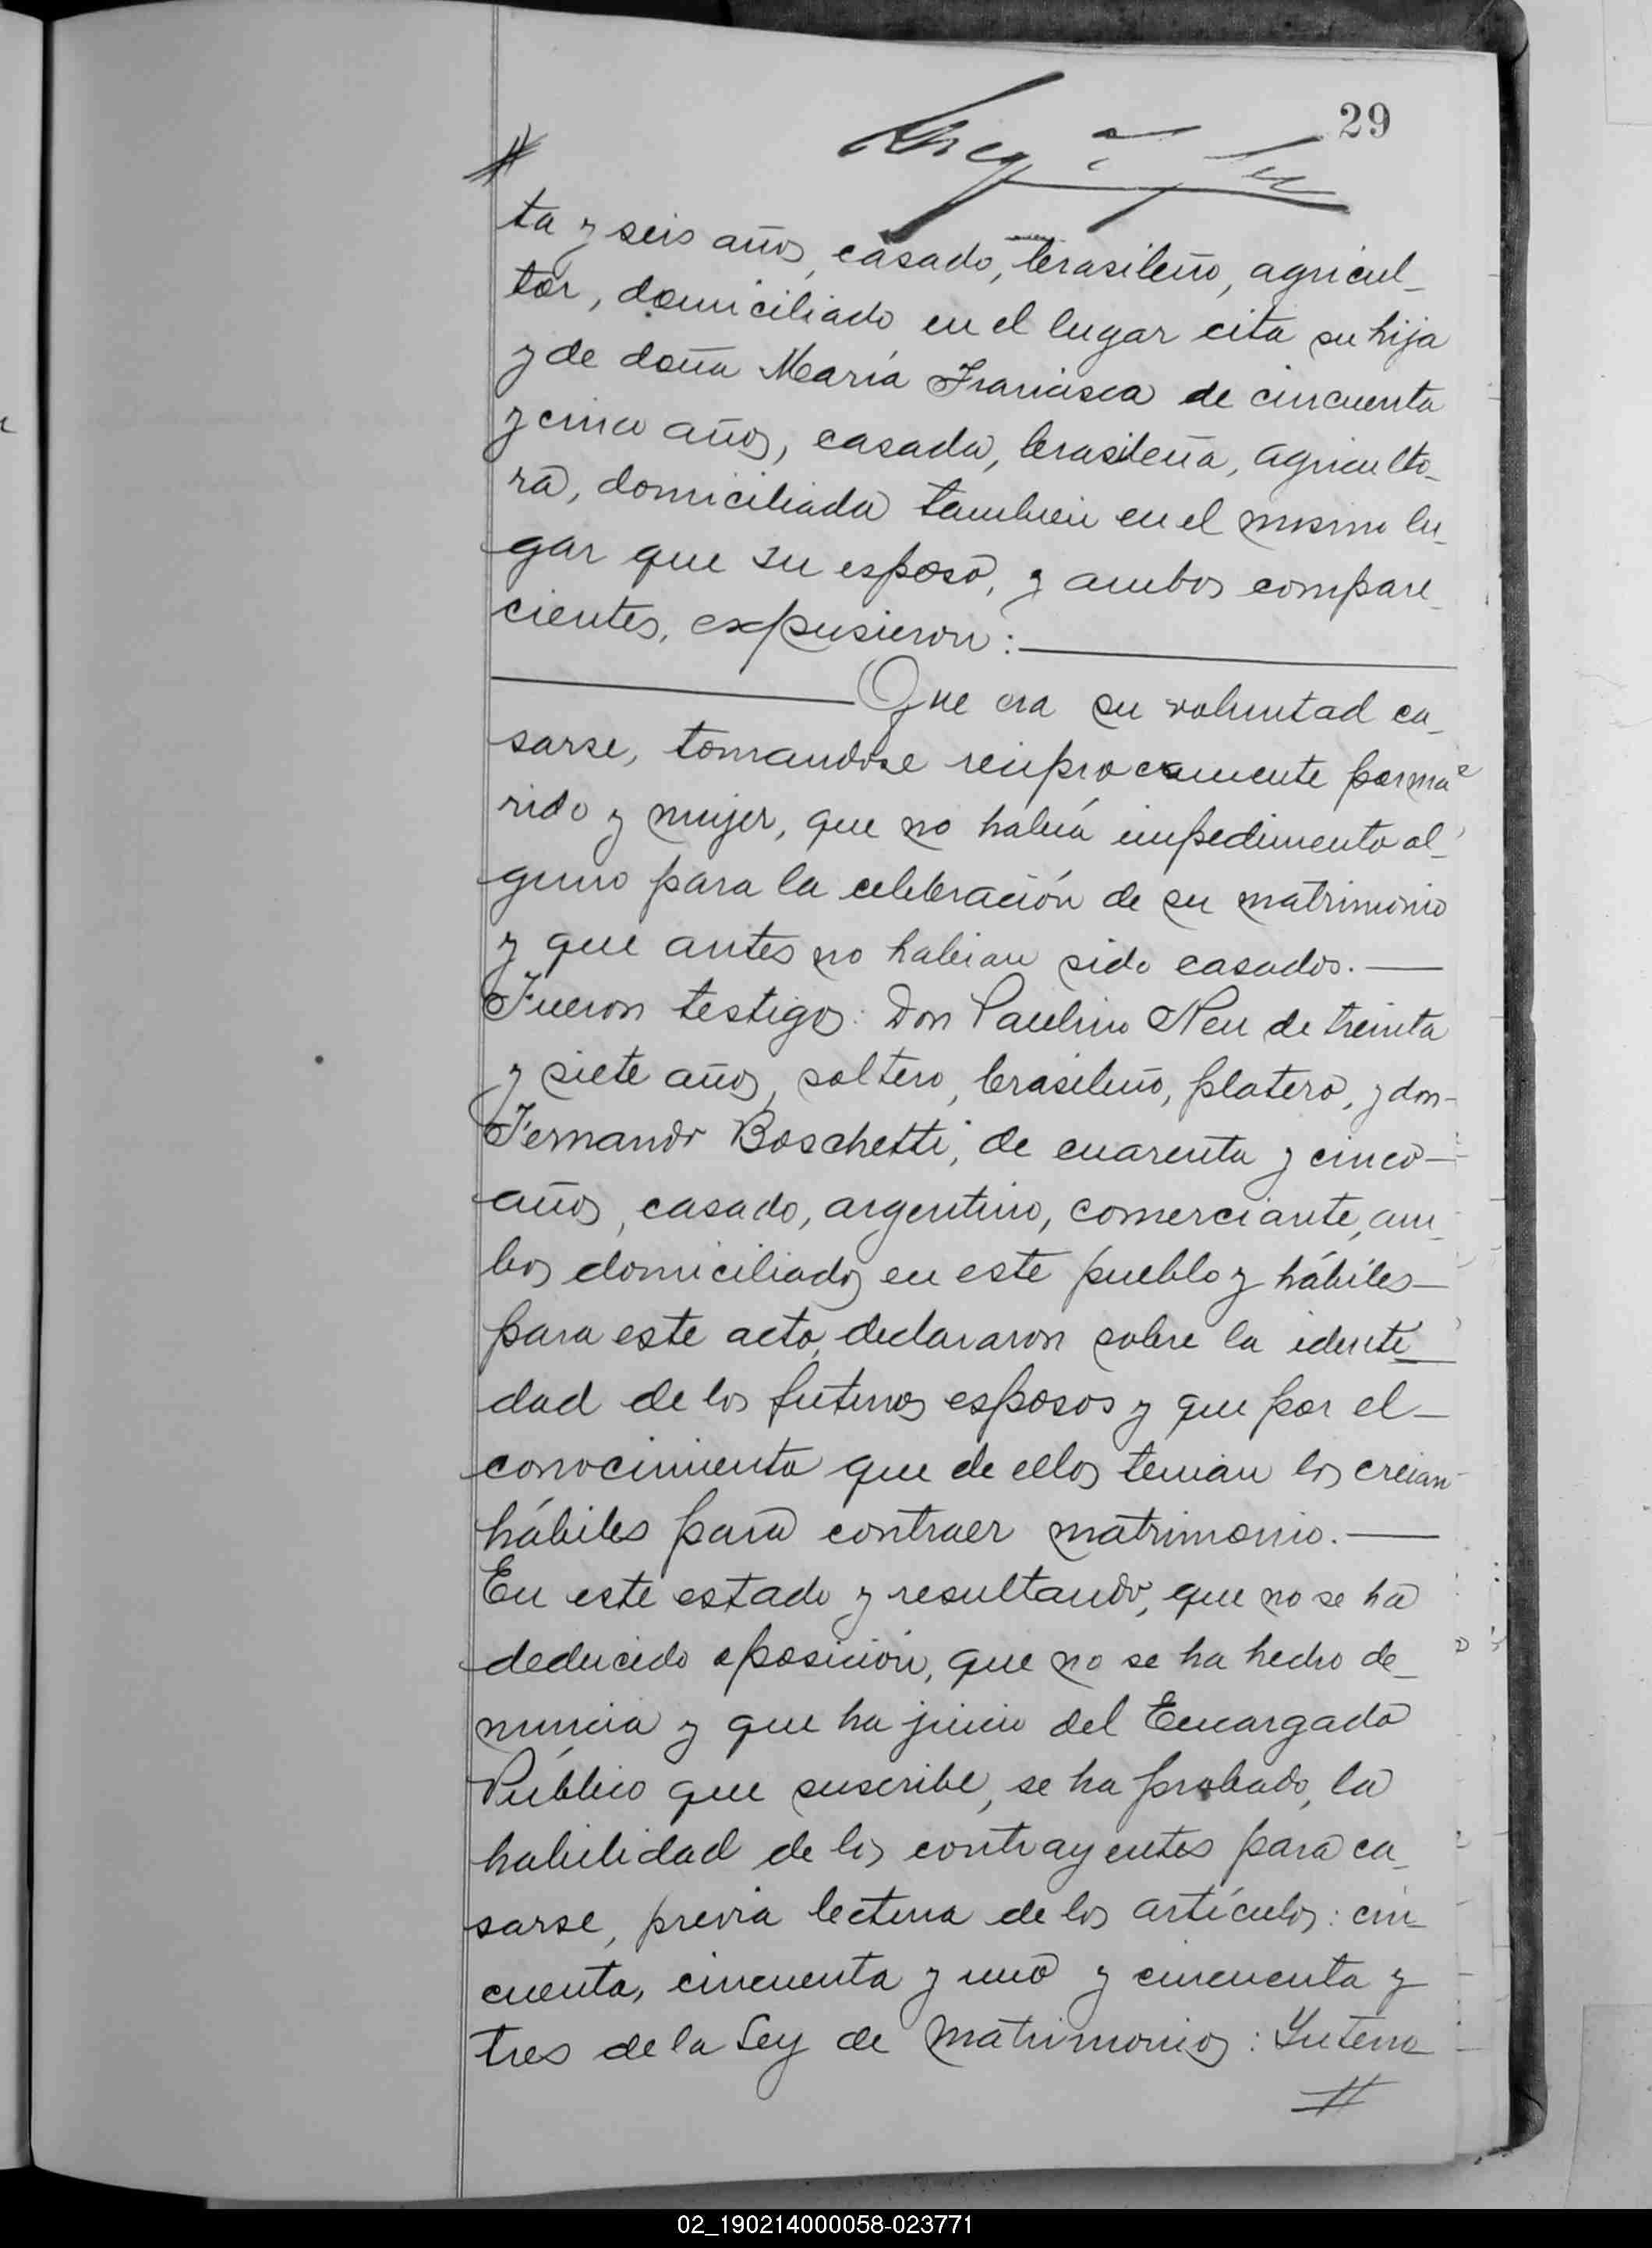 29
ta y seis años, casado, brasileño, agricul_
tor, domiciliado en el lugar cita su hija
y de doña María Francisca de cincuenta
y cinco años, casada, brasileña, agriculto_
ra, domiciliada tambien en el mismo lu_
gar que su esposo, y ambos compare_
cientes, expusieron:
Que era su voluntad ca_
sarse, tomandose reciprocamente por ma
rido y mujer, que no había impedimento al_
guno para la celebración de su matrimonio
y que antes no habian sido casados.—
Fueron testigos: Don Paulino Neu de treinta
y siete años, soltero, brasileño, platero, y don-
Fernando Boschetti, de cuarenta y cinco—
años, casado, argentino, comerciante, am_
bos domiciliados en este pueblo y hábiles—
para este acto, declararon sobre la identi_
dad de los futuros esposos y que por el—
conocimiento que de ellos tenian los creian
hábiles para contraer matrimonio.—
En este estado y resultando, que no se ha
deducido oposición, que no se ha hecho de_
nuncia y que ha juicio del Encargado
Público que suscribe, se ha probado, la
habilidad de los contrayentes para ca_
sarse, previa lectura de los artículos: cin_
cuenta, cincuenta y uno y cincuenta y
tres de la Ley de Matrimonios: Interro
02_190214000058-023771